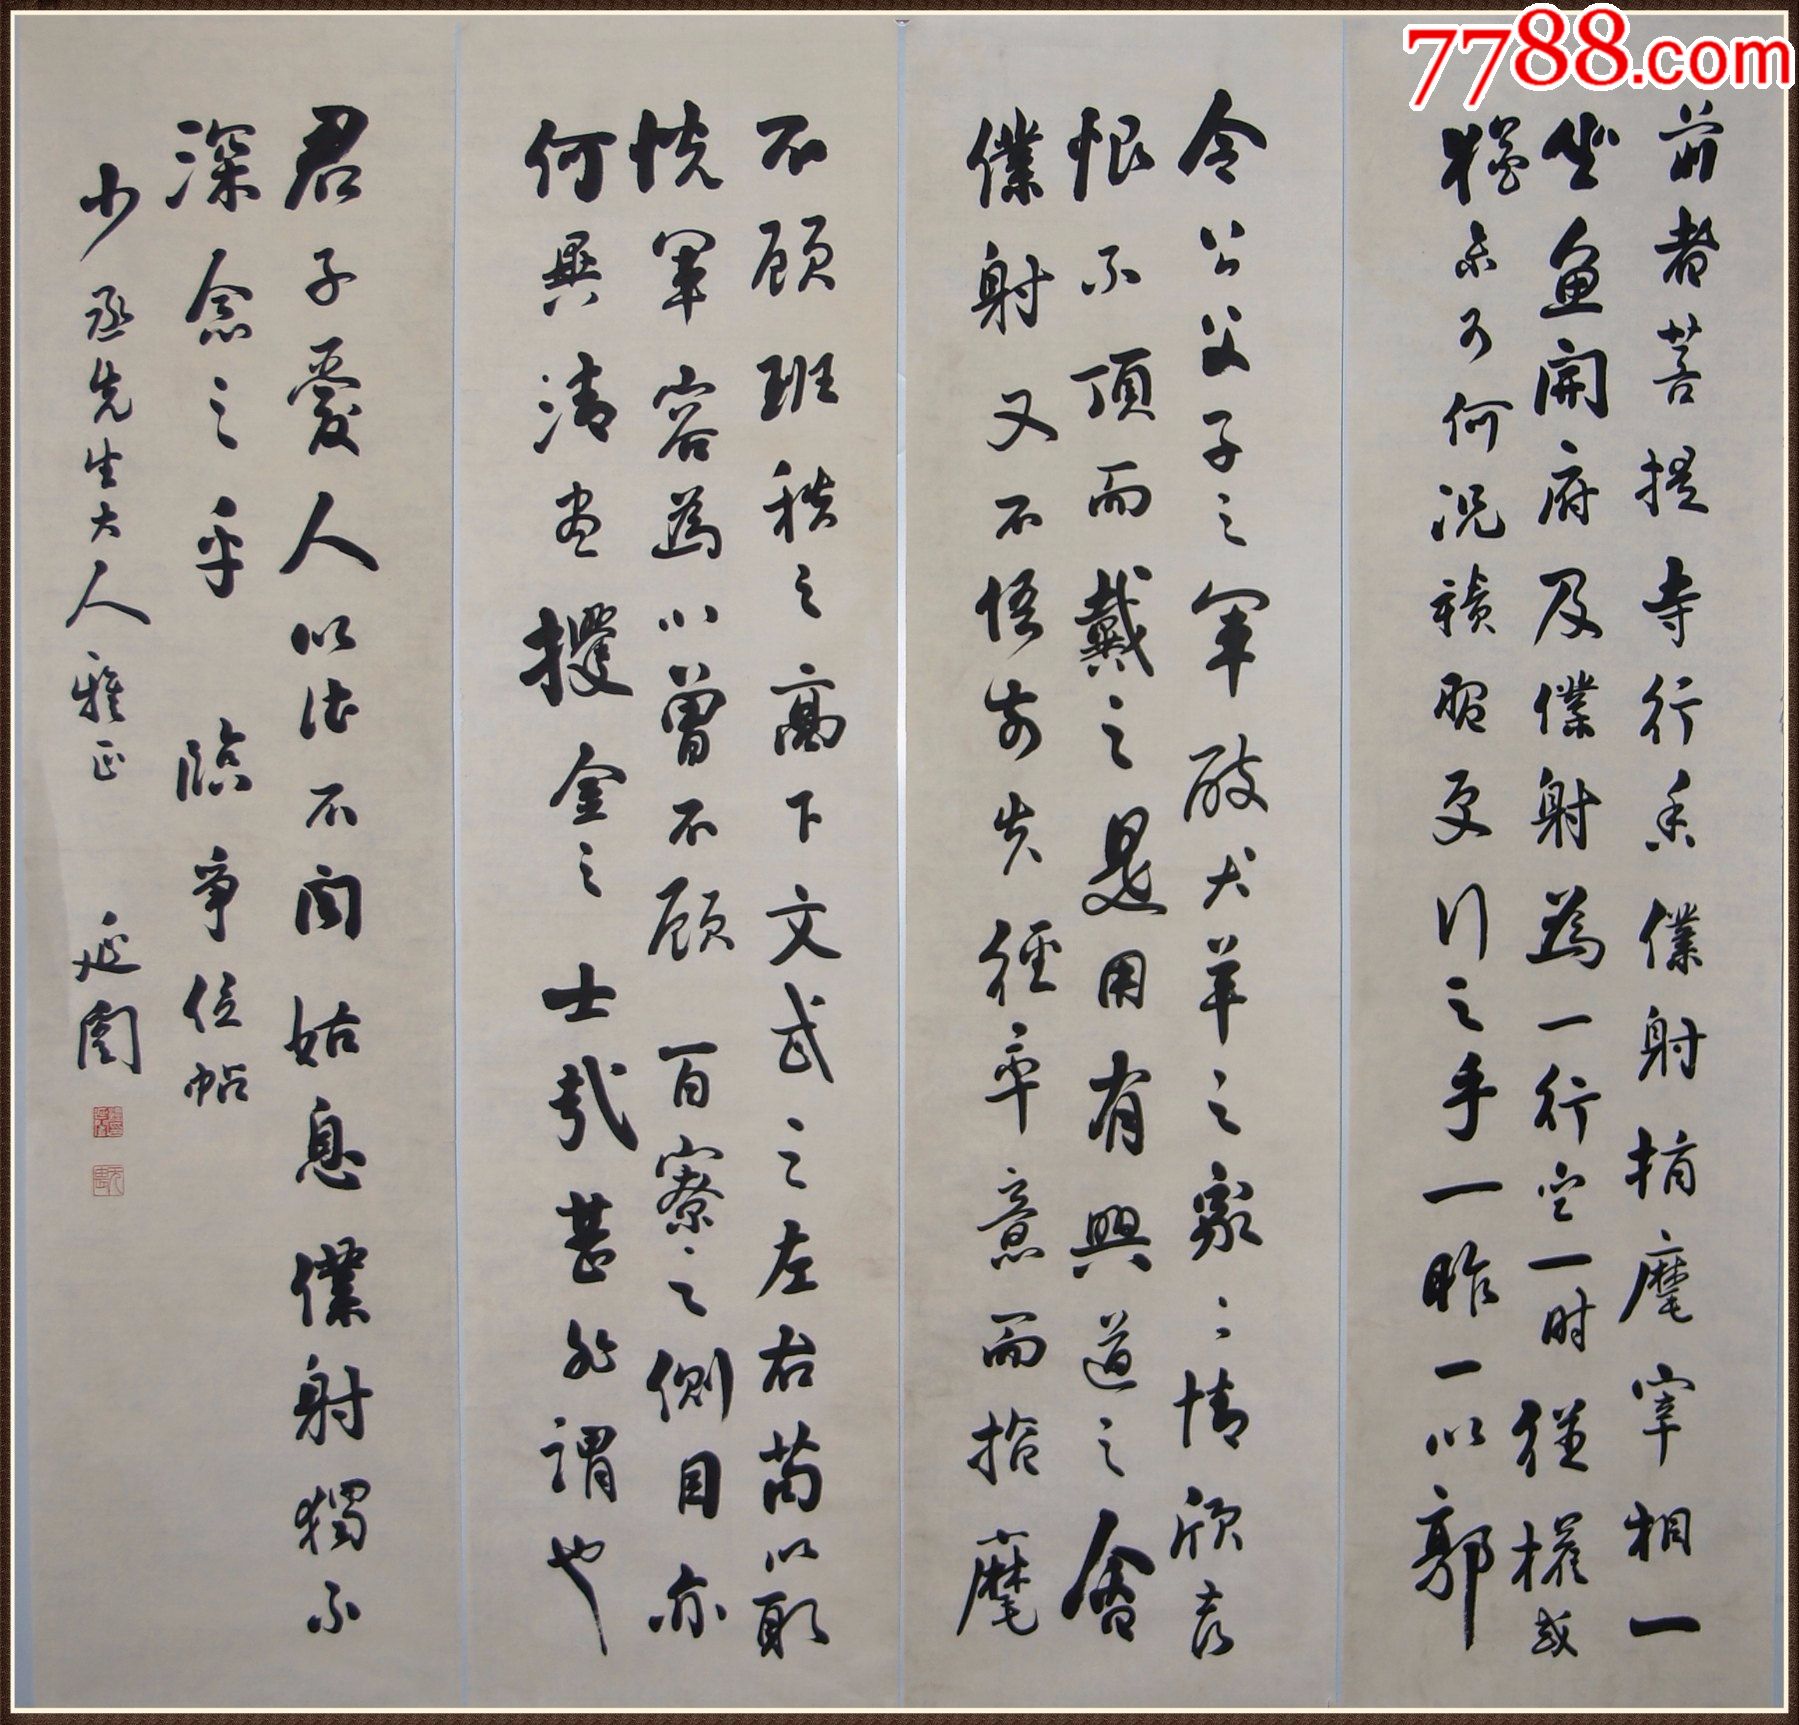 7788.com
前者菩提寺行香僕射指麾宰相一
坐魚開府及僕射為一行坐一時從權或
猶未可何況積習更行之乎一昨一以郭
令公父子之軍破犬羊之眾〻情欣喜
恨不頂而戴之是用有興道之會
僕射又不悟前失徑率意而指麾
不顧班秩之高下文武之左右苟以取
悅軍容為心曾不顧百寮之側目亦
何異清晝攫金之士哉甚非謂也
君子愛人以禮不聞姑息僕射獨不
深念之乎 臨爭位帖
少丞先生大人雅正 延闓